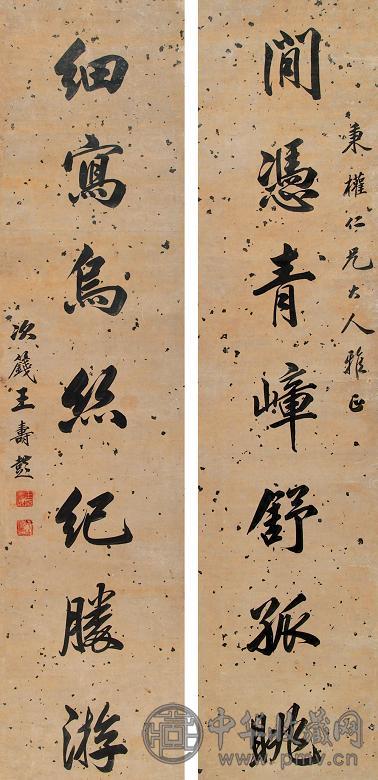 秉權仁兄大人雅正
閒憑青嶂舒孤眺
細寫烏絲紀勝游
次籛王壽彭
中华收藏网